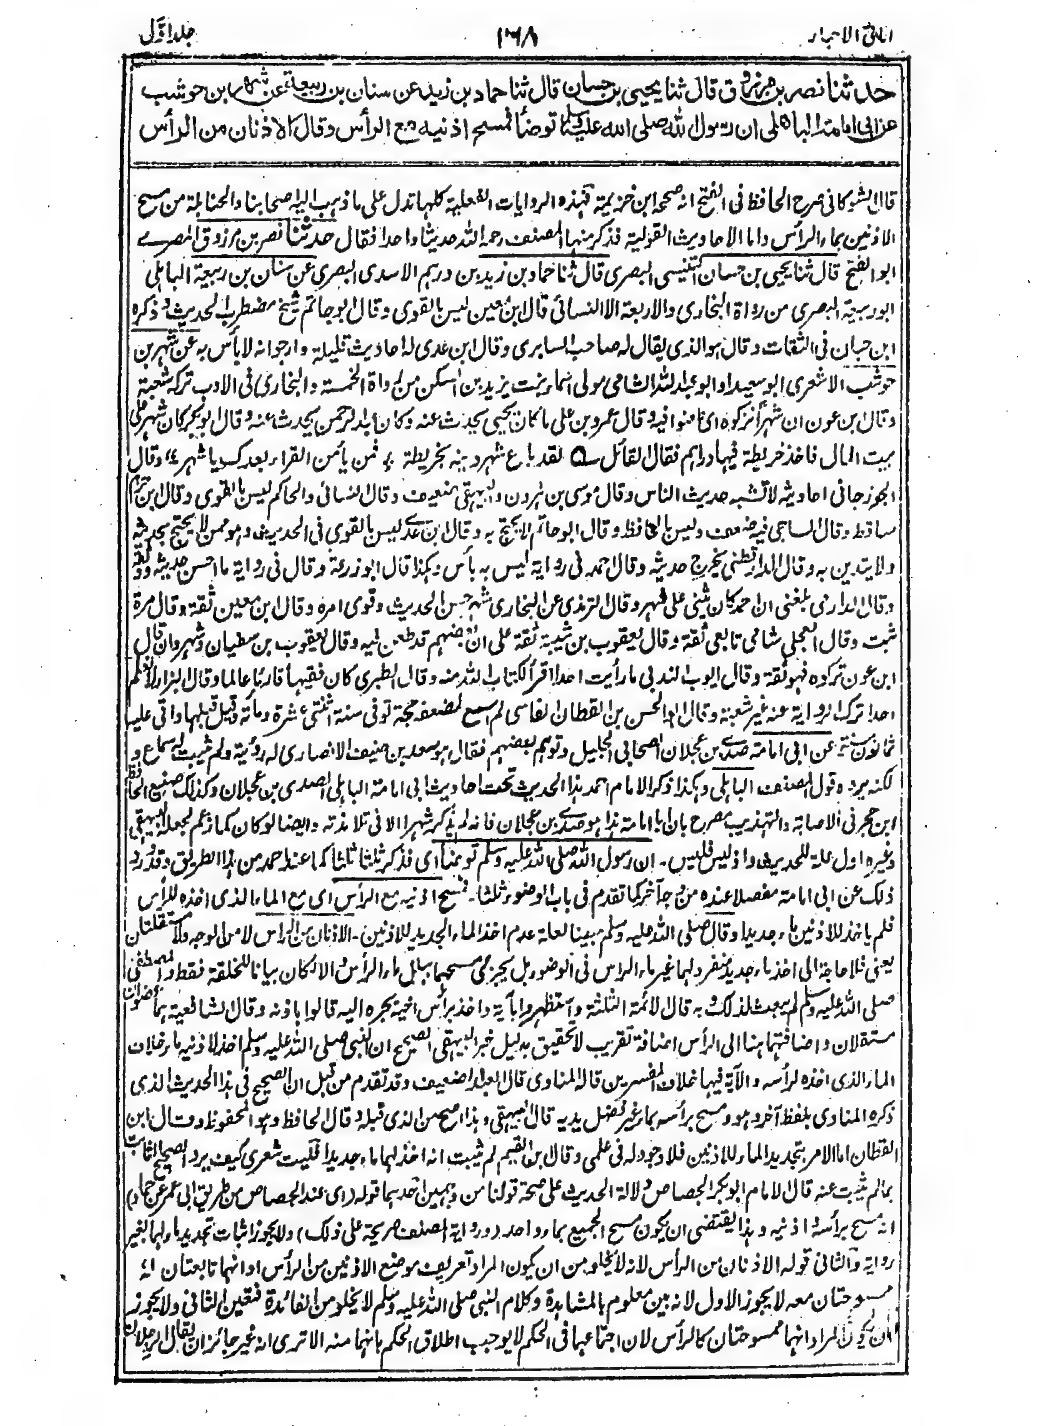 امانی الاحبار ١٦٨ جلد اوّل
حدثنا نصر بن مرزوق قال ثنا يحيى بن حسان قال ثنا حماد بن زيد عن سنان بن ربيعة عن شهر بن حوشب
عن ابى امامة الباهلى ان رسول الله صلى الله عليه وسلم توضأ فمسح اذنيه مع الرأس وقال الاذنان من الرأس
قال الشوكانى صرح الحافظ فى الفتح انه صححه ابن خزيمة فهذه الروايات الفعلية كلها تدل على ما ذهب اليه اصحابنا والحنابلة من مسح
الاذنين بماء الرأس واما الاحاديث القولية فذكر منها المصنف رحمه الله حديثا واحدا فقال حدثنا نصر بن مرزوق المصرى
ابو الفتح قال ثنا يحيى بن حسان التنيسى البصرى قال ثنا حماد بن زيد بن درهم الاسدى البصرى عن سنان بن ربيعة الباهلى
ابو ربيعة البصرى من رواة البخارى والاربعة الا النسائى قال ابن معين ليس بالقوى وقال ابو حاتم شيخ مضطرب الحديث وذكره
ابن حبان فى الثقات وقال هو الذى يقال له صاحب السابرى وقال ابن عدى له احاديث قليلة وارجو انه لا بأس به عن شهر بن
حوشب الاشعرى ابو سعيد او ابو عبد الله الشامى مولى اسماء بنت يزيد بن السكن من رواة الخمسة والبخارى فى الادب تركه شعبة
وقال ابن عون ان شهرا نزكوه اى طعنوا فيه وقال عمرو بن على ما كان يحيى يحدث عنه وكان عبد الرحمن يحدث عنه وقال ابو بكر كان شهر على
بيت المال فاخذ خريطة فيها دراهم فقال القائل لقد باع شهر دينه بخريطة ؛ فمن يأمن القراء بعدك يا شهر وقال
الجوزجانى احاديثه لا تشبه حديث الناس وقال موسى بن هارون والبيهقى ضعيف وقال النسائى والحاكم ليس بالقوى وقال ابن حزم
ساقط وقال الساجى فيه ضعف وليس بالحافظ وقال ابو حاتم لا يحتج به وقال ابن عدى ليس بالقوى فى الحديث وهو ممن لا يحتج بحديثه
ولا يتدين به وقال الدارقطنى يخرج حديثه وقال احمد فى رواية ليس به بأس وكذا قال ابو زرعة وقال فى رواية ما احسن حديثه ووثقه
وقال الدارمى بلغنى ان احمد كان يثنى على شهر وقال الترمذى عن البخارى شهر حسن الحديث وقوى امره وقال ابن معين ثقة وقال مرة
ثبت وقال العجلى شامى تابعى ثقة وقال يعقوب بن شيبة ثقة على ان بعضهم قد طعن فيه وقال يعقوب بن سفيان وشهر وان قال
ابن عون تركوه فهو ثقة وقال ايوب ما رأيت احدا اقرأ لكتاب الله منه وقال الطبرى كان فقيها قارئا عالما وقال البزار لا نعلم
احدا ترك الرواية عنه غير شعبة وقال ابو الحسن بن القطان الفاسى لم اسمع لمضعفه حجة توفى سنة اثنتى عشرة ومائة وقيل قبلها واتى عليه
ثمانون سنة عن ابى امامة صدى بن عجلان الصحابى الجليل وتوهم بعضهم فقال هو سعد بن حنيف الانصارى له رؤية ولم يثبت له سماع و
لكنه يرده قول المصنف الباهلى وهكذا ذكر الامام احمد هذا الحديث تحت احاديث ابى امامة الباهلى الصدى بن عجلان وكذلك صنيع الحافظ
ابن حجر فى الاصابة والتهذيب مصرح بان ابا امامة هذا هو صدى بن عجلان فانه لم يذكر شهرا الا فى تلامذته وايضا لو كان كما زعم لجعله البيهقى
وغيره اول علة للحديث واذ ليس فليس ۔ ان رسول الله صلى الله عليه وسلم توضأ اى فذكر ثلثا ثلثا كما عند احمد من هذا الطريق وقد ورد
ذلك عن ابى امامة مفصلا عنده من وجه آخر كما تقدم فى باب الوضوء ثلثا ۔ فمسح اذنيه مع الرأس اى مع الماء الذى اخذه للرأس
فلم يأخذ للاذنين ماء جديدا وقال صلى الله عليه وسلم مبينا لعلة عدم اخذ الماء الجديد للاذنين ۔ الاذنان من الرأس لا من الوجه ولا مستقلتان
يعنى فلا حاجة الى اخذ ماء جديد منفرد لهما غير ماء الرأس فى الوضوء بل يجزئ مسحهما ببلل ماء الرأس والا لكان بيانا للخلقة فقط والمصطفى
صلى الله عليه وسلم لم يبعث لذلك وبه قال الائمة الثلثة واستظهروا بآية واخذ برأس اخيه يجره اليه قالوا باذنه وقال الشافعية هما عضوان
مستقلان واضافتهما هنا الى الرأس اضافة تقريب لا تحقيق بدليل خبر البيهقى الصحيح ان النبى صلى الله عليه وسلم اخذ لاذنيه ماء خلاف
الماء الذى اخذه لرأسه والآية فيها خلاف المفسرين قاله المناوى قال العبد الضعيف وقد تقدم من قبل ان الصحيح فى هذا الحديث الذى
ذكره المناوى بلفظ آخر وهو ومسح برأسه بماء غير فضل يديه قال البيهقى وهذا اصح من الذى قبله وقال الحافظ وهو المحفوظ وقال ابن
القطان اما الامر بتجديد الماء للاذنين فلا وجود له فى علمى وقال ابن القيم لم يثبت انه اخذ لهما ماء جديدا فليت شعرى كيف يرد الصحيح الثابت
بما لم يثبت عنه قال الامام ابو بكر الجصاص دلالة الحديث على صحة قولنا من وجهين احدهما قوله (اى عند الجصاص من طريق ابى عمر عن حماد)
انه مسح برأسه واذنيه وهذا يقتضى ان يكون مسح الجميع بماء واحد (ورواية المصنف صريحة على ذلك) ولا يجوز اثبات تجديد ماء لهما بغير
رواية والثانى قوله الاذنان من الرأس لانه لا يخلو من ان يكون المراد تعريف موضع الاذنين من الرأس او انهما تابعتان له
ممسوحتان معه لا يجوز الاول لانه بين معلوم بالمشاهدة وكلام النبى صلى الله عليه وسلم لا يخلو من الفائدة فتعين الثانى ولا يجوز
ان يكون المراد انهما ممسوحتان كالرأس لان اجتماعهما فى الحكم لا يوجب اطلاق الحكم بانهما منه الا ترى انه غير جائز ان يقال الرجلان